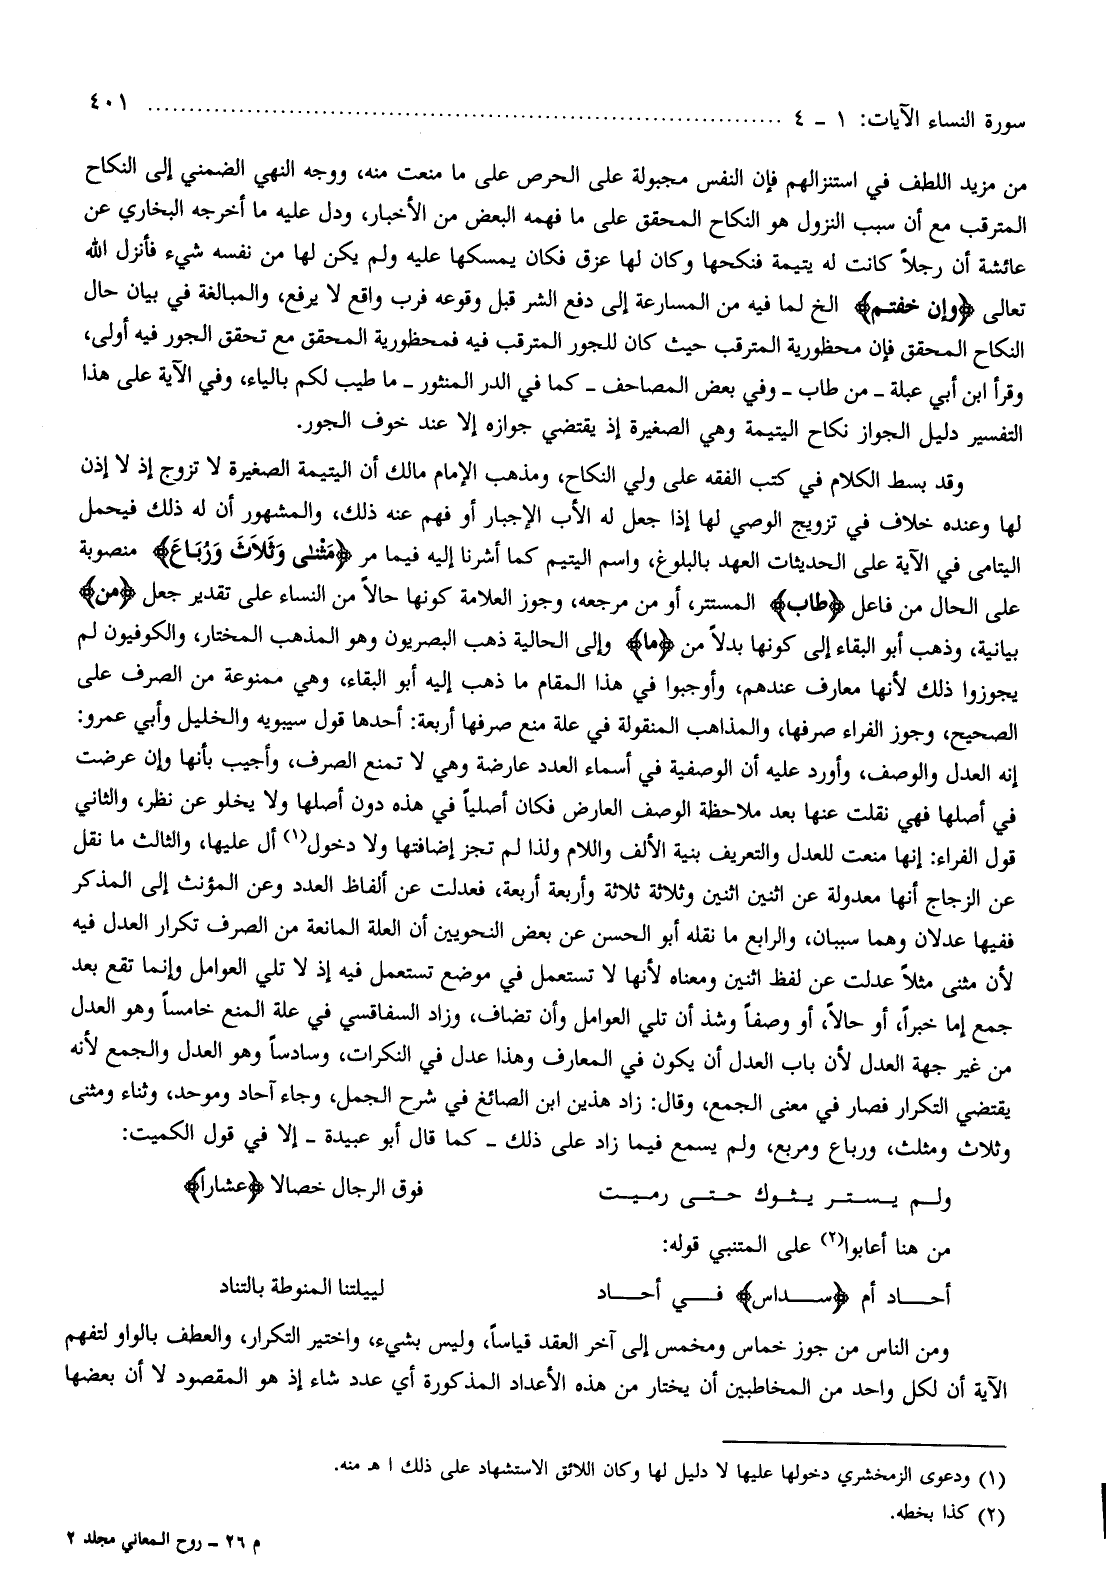 سورة النساء الآيات: ١ ـ ٤ ........................................................................ ٤٠١
من مزيد اللطف في استنزالهم فإن النفس مجبولة على الحرص على ما منعت منه، ووجه النهي الضمني إلى النكاح
المترقب مع أن سبب النزول هو النكاح المحقق على ما فهمه البعض من الأخبار، ودل عليه ما أخرجه البخاري عن
عائشة أن رجلاً كانت له يتيمة فنكحها وكان لها عزق فكان يمسكها عليه ولم يكن لها من نفسه شيء فأنزل الله
تعالى ﴿وإن خفتم﴾ الخ لما فيه من المسارعة إلى دفع الشر قبل وقوعه فرب واقع لا يرفع، والمبالغة في بيان حال
النكاح المحقق فإن محظورية المترقب حيث كان للجور المترقب فيه فمحظورية المحقق مع تحقق الجور فيه أولى،
وقرأ ابن أبي عبلة ـ من طاب ـ وفي بعض المصاحف ـ كما في الدر المنثور ـ ما طيب لكم بالياء، وفي الآية على هذا
التفسير دليل الجواز نكاح اليتيمة وهي الصغيرة إذ يقتضي جوازه إلا عند خوف الجور.
وقد بسط الكلام في كتب الفقه على ولي النكاح، ومذهب الإمام مالك أن اليتيمة الصغيرة لا تزوج إذ لا إذن
لها وعنده خلاف في تزويج الوصي لها إذا جعل له الأب الإجبار أو فهم عنه ذلك، والمشهور أن له ذلك فيحمل
اليتامى في الآية على الحديثات العهد بالبلوغ، واسم اليتيم كما أشرنا إليه فيما مر ﴿مَثْنىٰ وَثَلاَثَ وَرُبَاعَ﴾ منصوبة
على الحال من فاعل ﴿طاب﴾ المستتر، أو من مرجعه، وجوز العلامة كونها حالاً من النساء على تقدير جعل ﴿من﴾
بيانية، وذهب أبو البقاء إلى كونها بدلاً من ﴿ما﴾ وإلى الحالية ذهب البصريون وهو المذهب المختار، والكوفيون لم
يجوزوا ذلك لأنها معارف عندهم، وأوجبوا في هذا المقام ما ذهب إليه أبو البقاء، وهي ممنوعة من الصرف على
الصحيح، وجوز الفراء صرفها، والمذاهب المنقولة في علة منع صرفها أربعة: أحدها قول سيبويه والخليل وأبي عمرو:
إنه العدل والوصف، وأورد عليه أن الوصفية في أسماء العدد عارضة وهي لا تمنع الصرف، وأجيب بأنها وإن عرضت
في أصلها فهي نقلت عنها بعد ملاحظة الوصف العارض فكان أصلياً في هذه دون أصلها ولا يخلو عن نظر، والثاني
قول الفراء: إنها منعت للعدل والتعريف بنية الألف واللام ولذا لم تجز إضافتها ولا دخول(١) أل عليها، والثالث ما نقل
عن الزجاج أنها معدولة عن اثنين اثنين وثلاثة ثلاثة وأربعة أربعة، فعدلت عن ألفاظ العدد وعن المؤنث إلى المذكر
ففيها عدلان وهما سببان، والرابع ما نقله أبو الحسن عن بعض النحويين أن العلة المانعة من الصرف تكرار العدل فيه
لأن مثنى مثلاً عدلت عن لفظ اثنين ومعناه لأنها لا تستعمل في موضع تستعمل فيه إذ لا تلي العوامل وإنما تقع بعد
جمع إما خبراً، أو حالاً، أو وصفاً وشذ أن تلي العوامل وأن تضاف، وزاد السفاقسي في علة المنع خامساً وهو العدل
من غير جهة العدل لأن باب العدل أن يكون في المعارف وهذا عدل في النكرات، وسادساً وهو العدل والجمع لأنه
يقتضي التكرار فصار في معنى الجمع، وقال: زاد هذين ابن الصائغ في شرح الجمل، وجاء آحاد وموحد، وثناء ومثنى
وثلاث ومثلث، ورباع ومربع، ولم يسمع فيما زاد على ذلك ـ كما قال أبو عبيدة ـ إلا في قول الكميت:
ولم يستر يثوك حتى رميت    فوق الرجال خصالا ﴿عشارا﴾
من هنا أعابوا(٢) على المتنبي قوله:
أحاد أم ﴿سداس﴾ في أحاد    لييلتنا المنوطة بالتناد
ومن الناس من جوز خماس ومخمس إلى آخر العقد قياساً، وليس بشيء، واختير التكرار، والعطف بالواو لتفهم
الآية أن لكل واحد من المخاطبين أن يختار من هذه الأعداد المذكورة أي عدد شاء إذ هو المقصود لا أن بعضها
(١) ودعوى الزمخشري دخولها عليها لا دليل لها وكان اللائق الاستشهاد على ذلك ا هـ منه.
(٢) كذا بخطه.
م ٢٦ ـ روح المعاني مجلد ٢